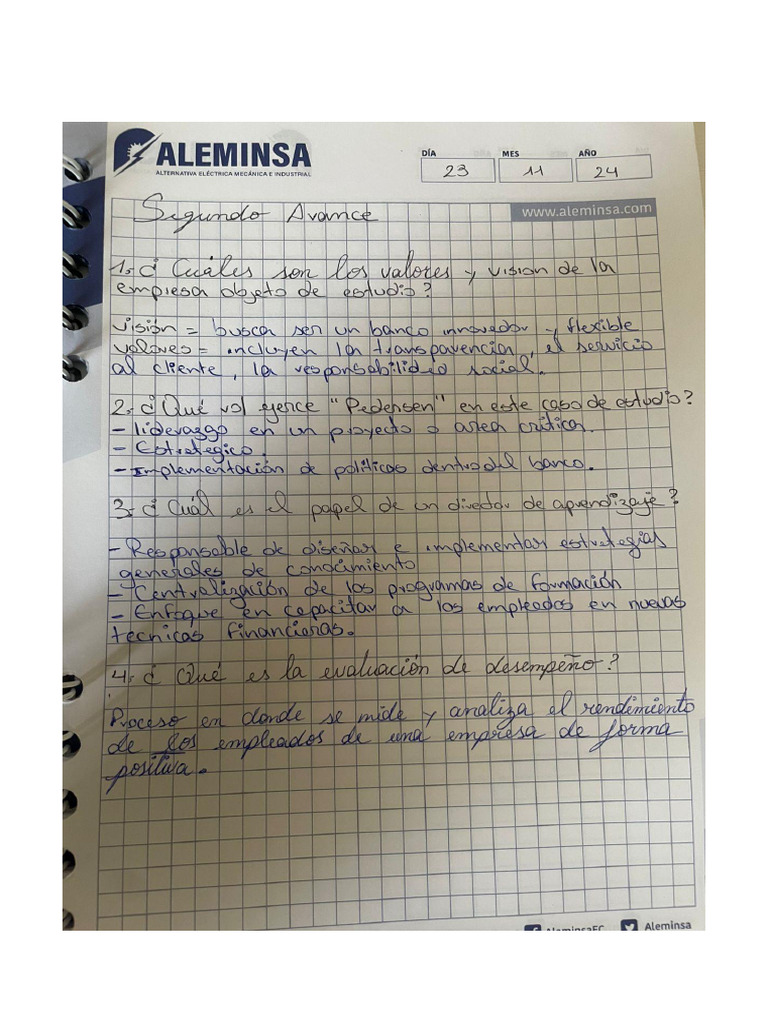 ALEMINSA
ALTERNATIVA ELÉCTRICA MECÁNICA E INDUSTRIAL
DÍA MES AÑO
23 11 24
www.aleminsa.com
Segundo Avance
1. ¿Cuáles son los valores y vision de la
empresa objeto de estudio?
visión = busca ser un banco innovador y flexible
valores = incluyen la transparencia, el servicio
al cliente, la responsabilidad social.
2. ¿Qué rol ejerce "Pedersen" en este caso de estudio?
- liderazgo en un proyecto o area critica.
- Estrategico.
- Implementación de politicas dentro del banco.
3. ¿Cuál es el papel de un director de aprendizaje?
- Responsable de diseñar e implementar estrategias
generales de conocimiento
- Centralización de los programas de formación
- Enfoque en capacitar a los empleados en nuevas
tecnicas financieras.
4. ¿Qué es la evaluación de desempeño?
Proceso en donde se mide y analiza el rendimiento
de los empleados de una empresa de forma
positiva.
AleminsaEC Aleminsa